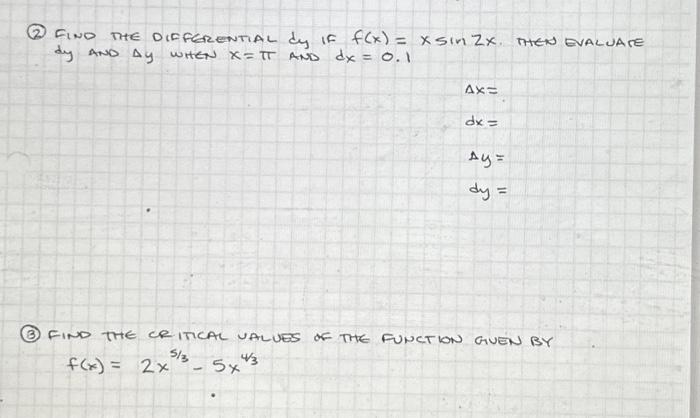 ② FIND THE DIFFERENTIAL dy IF f(x) = x sin 2x. THEN EVALUATE
dy AND Δy WHEN x = π AND dx = 0.1
Δx =
dx =
Δy =
dy =
③ FIND THE CRITICAL VALUES OF THE FUNCTION GIVEN BY
f(x) = 2x^5/3 - 5x^4/3